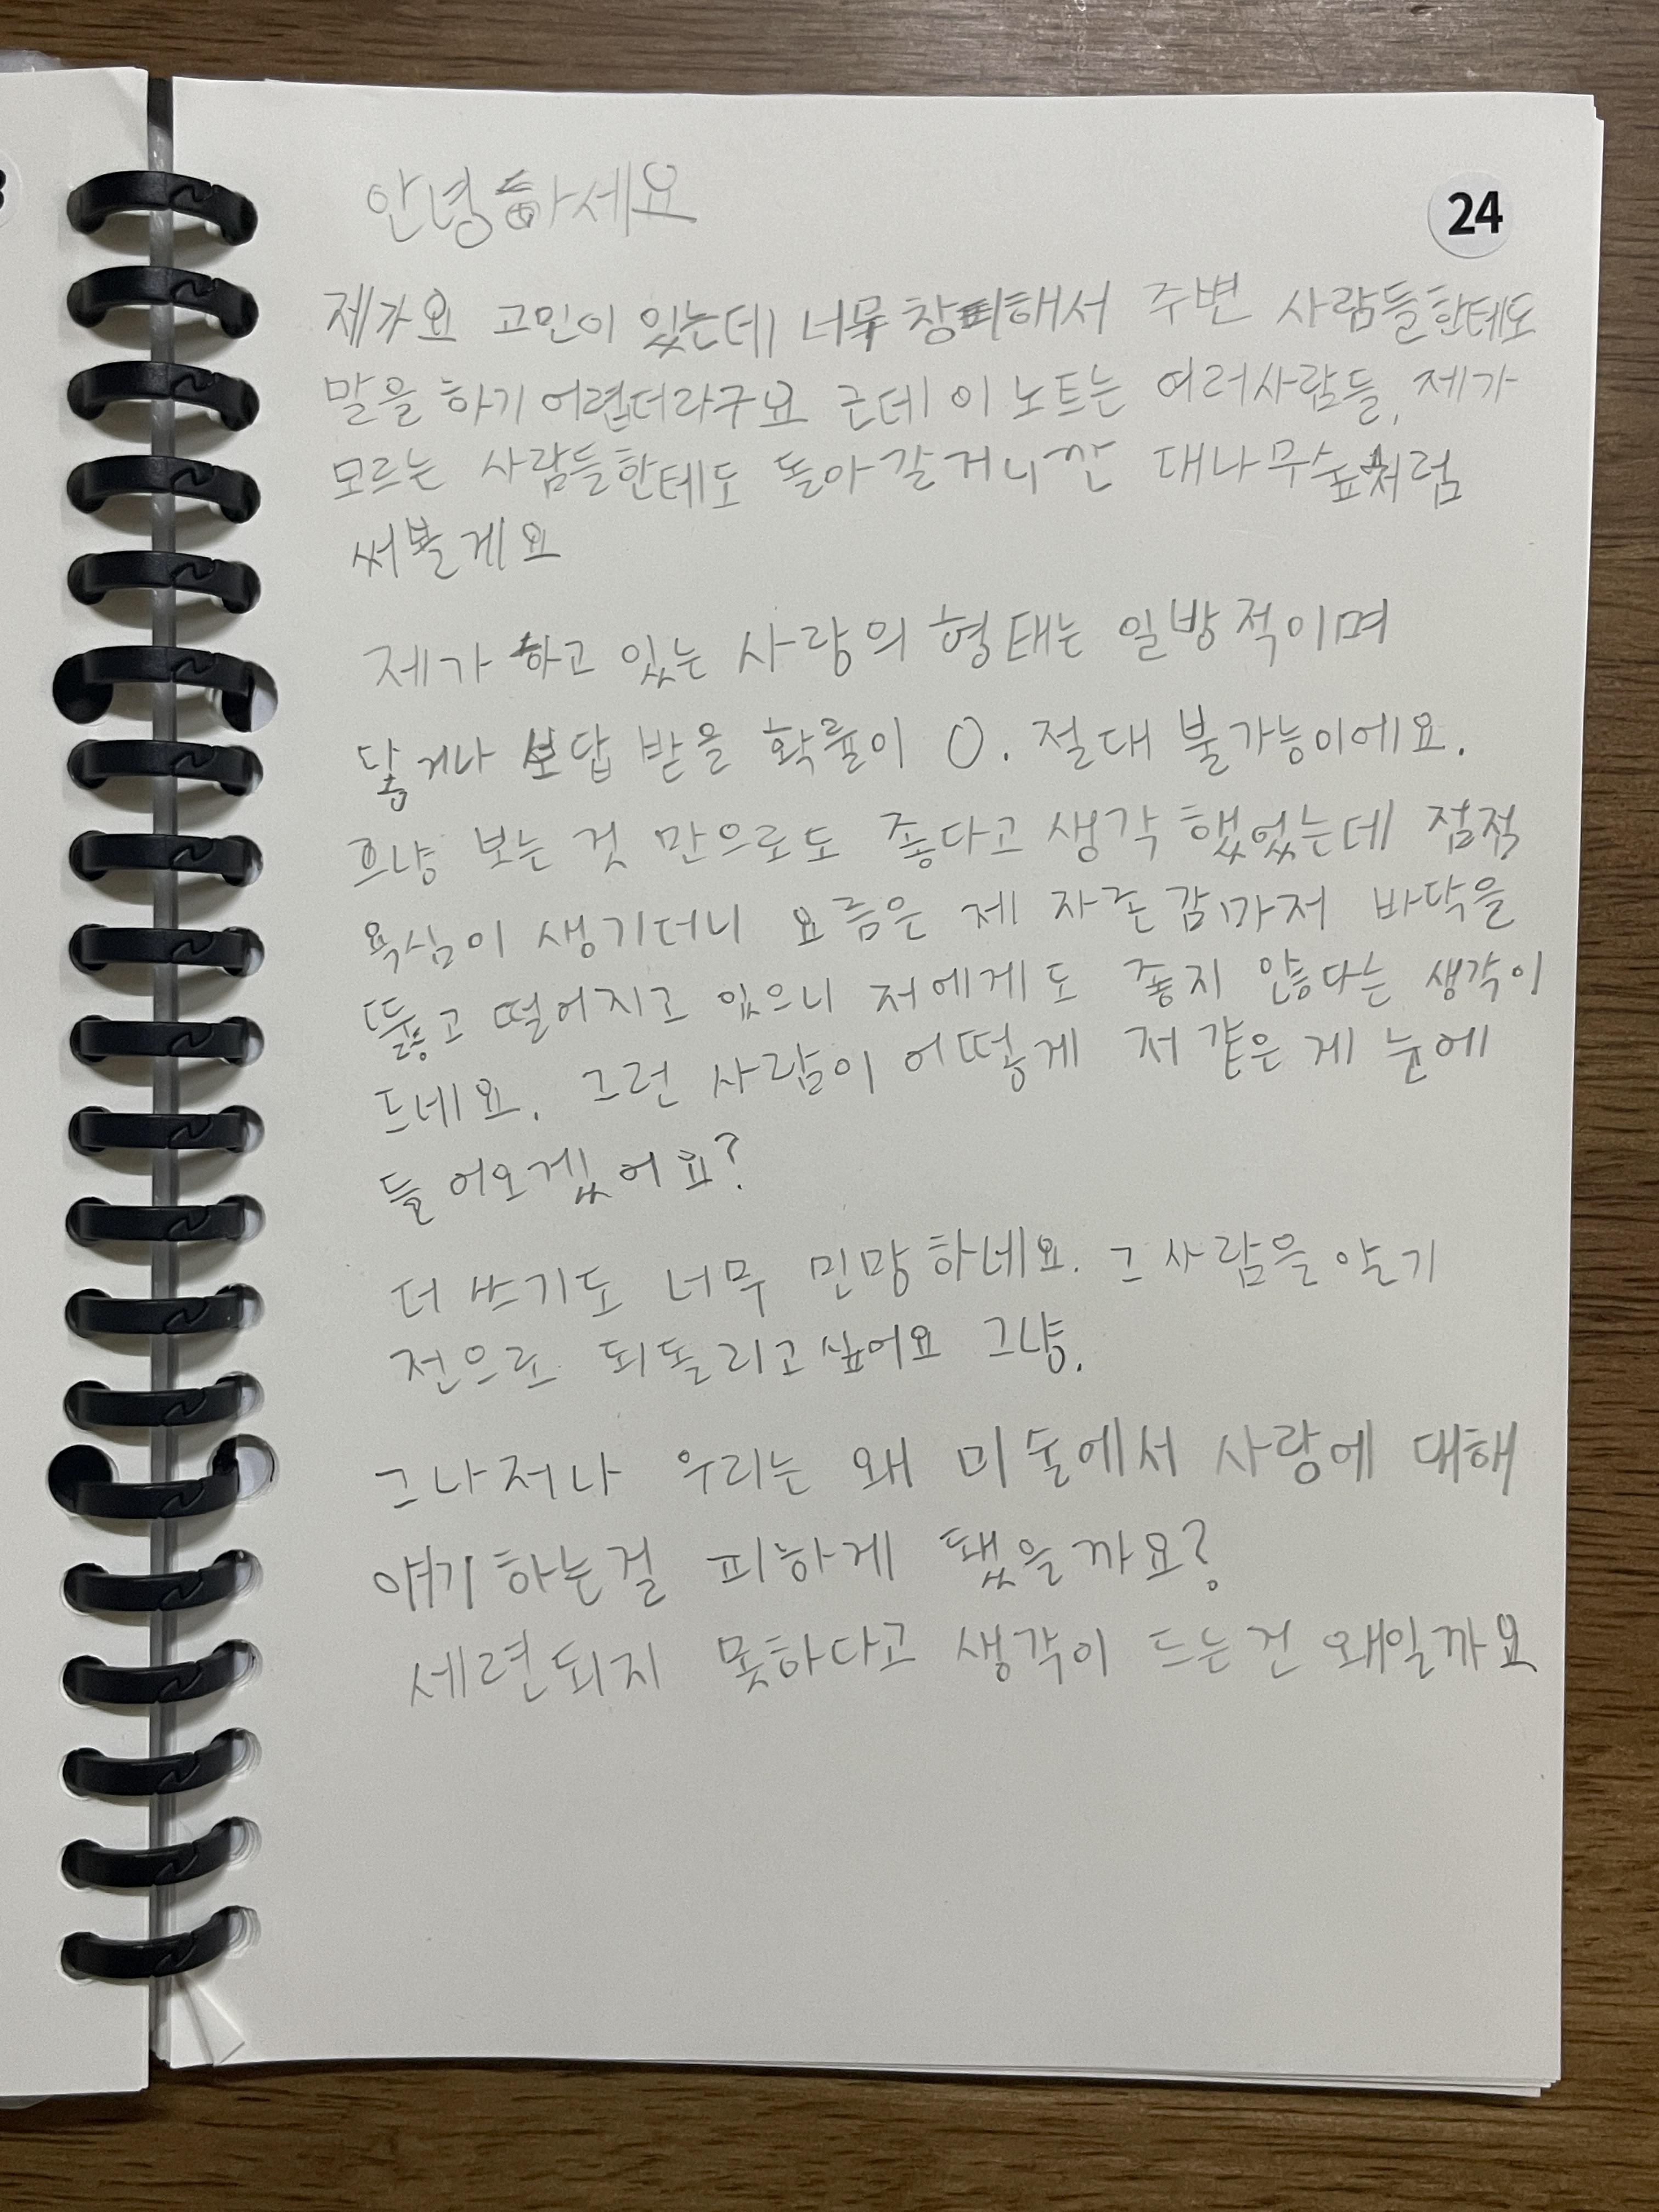 안녕하세요
24
제가요 고민이 있는데 너무 창피해서 주변 사람들한테도
말을 하기 어렵더라구요 근데 이 노트는 여러사람들, 제가
모르는 사람들한테도 돌아갈거니깐 대나무숲처럼
써볼게요
제가 하고 있는 사랑의 형태는 일방적이며
닿거나 보답 받을 확률이 0. 절대 불가능이에요.
그냥 보는 것 만으로도 좋다고 생각했었는데 점적
욕심이 생기더니 요즘은 제 자존감까지 바닥을
뚫고 떨어지고 있으니 저에게도 좋지 않다는 생각이
드네요. 그런 사람이 어떻게 저 같은 게 눈에
들어오겠어요?
더 쓰기도 너무 민망하네요. 그 사람을 알기
전으로 되돌리고싶어요 그냥.
그나저나 우리는 왜 미술에서 사랑에 대해
얘기하는걸 피하게 됐을까요?
세련되지 못하다고 생각이 드는건 왜일까요